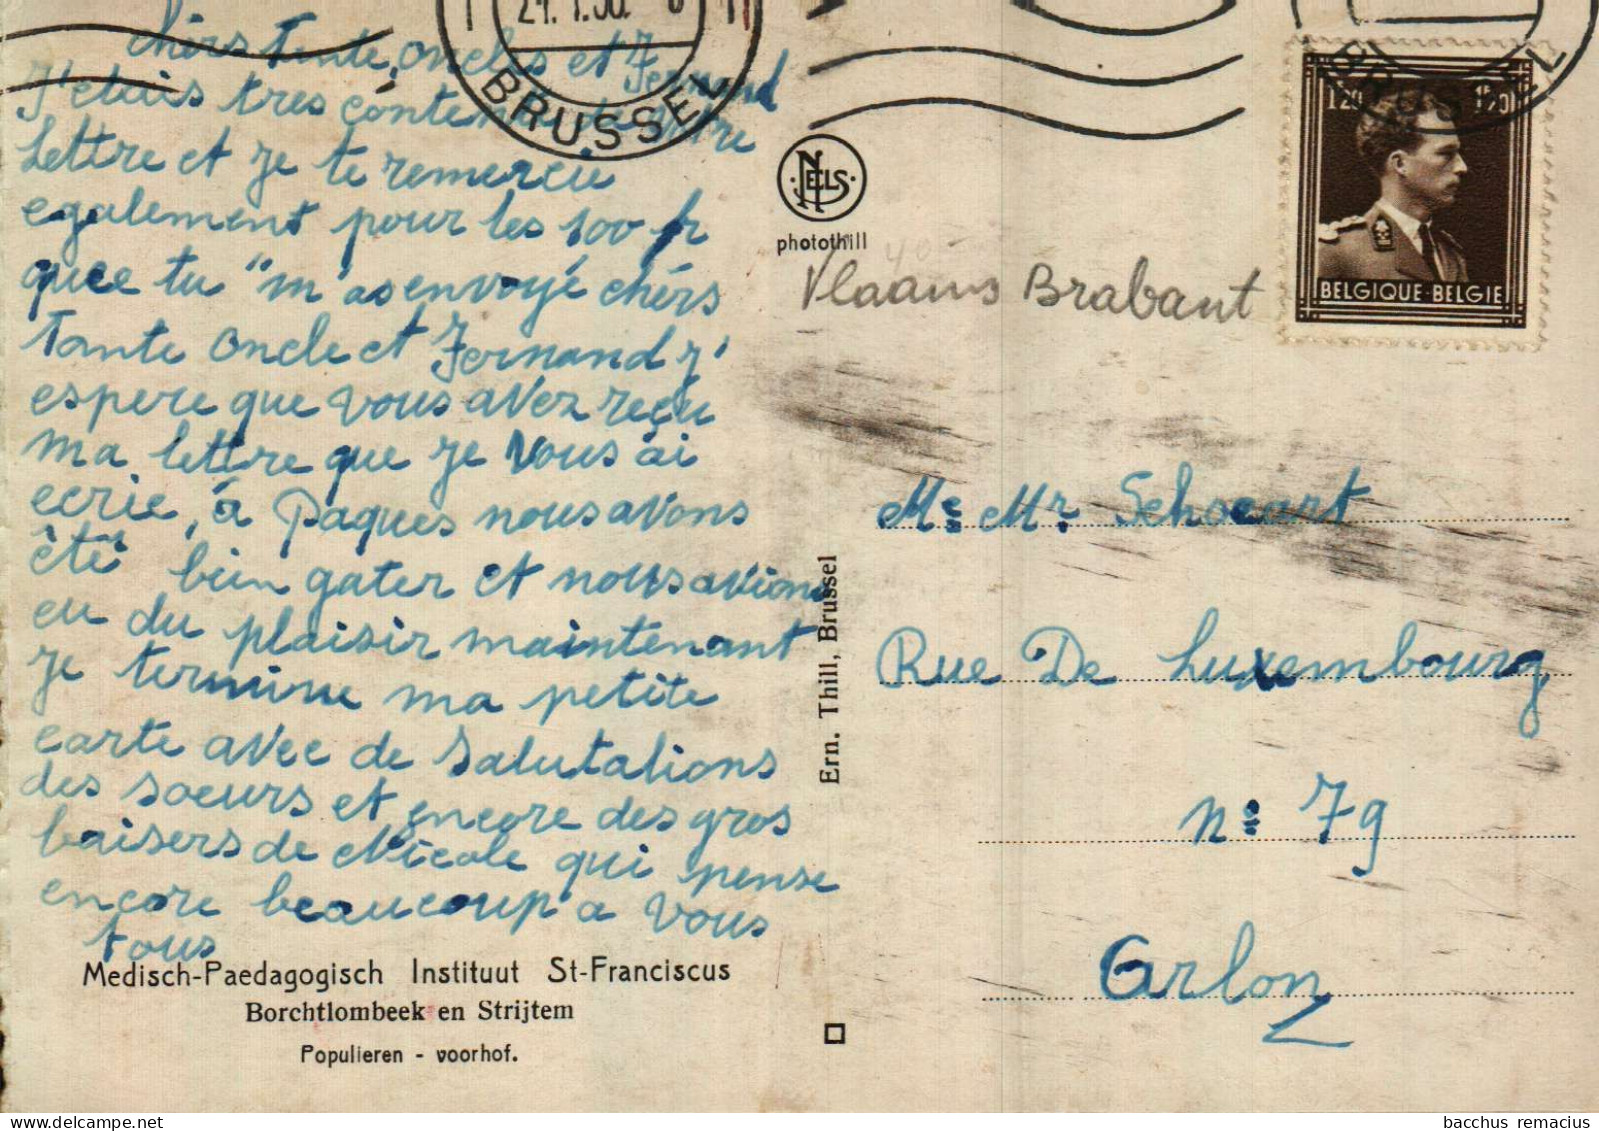 chers Tante, oncles et Fernand
J'etais tres contente de votre
Lettre et je te remercie
egalement pour les 100 fr
quee tu "m'as envoyé chérs
Tante oncle et Fernand j'
espere que vous avez reçu
ma lettre que je vous ai
ecrie, à Paques nous avons
étè bien gater et nous avions
eu du plaisir maintenant
je termine ma petite
carte avec de salutations
des soeurs et encore des gros
baisers de Nicole qui pense
encore beaucoup a vous
tous
Medisch-Paedagogisch Instituut St-Franciscus
Borchtlombeek en Strijtem
Populieren - voorhof.
BRUSSEL
NELS
photothill
Vlaams Brabant
1F20 1F20
BELGIQUE-BELGIE
BRUSSEL
Ern. Thill, Brussel
Me Mr
Rue De Luxembourg
no 79
Arlon
bacchus remacius